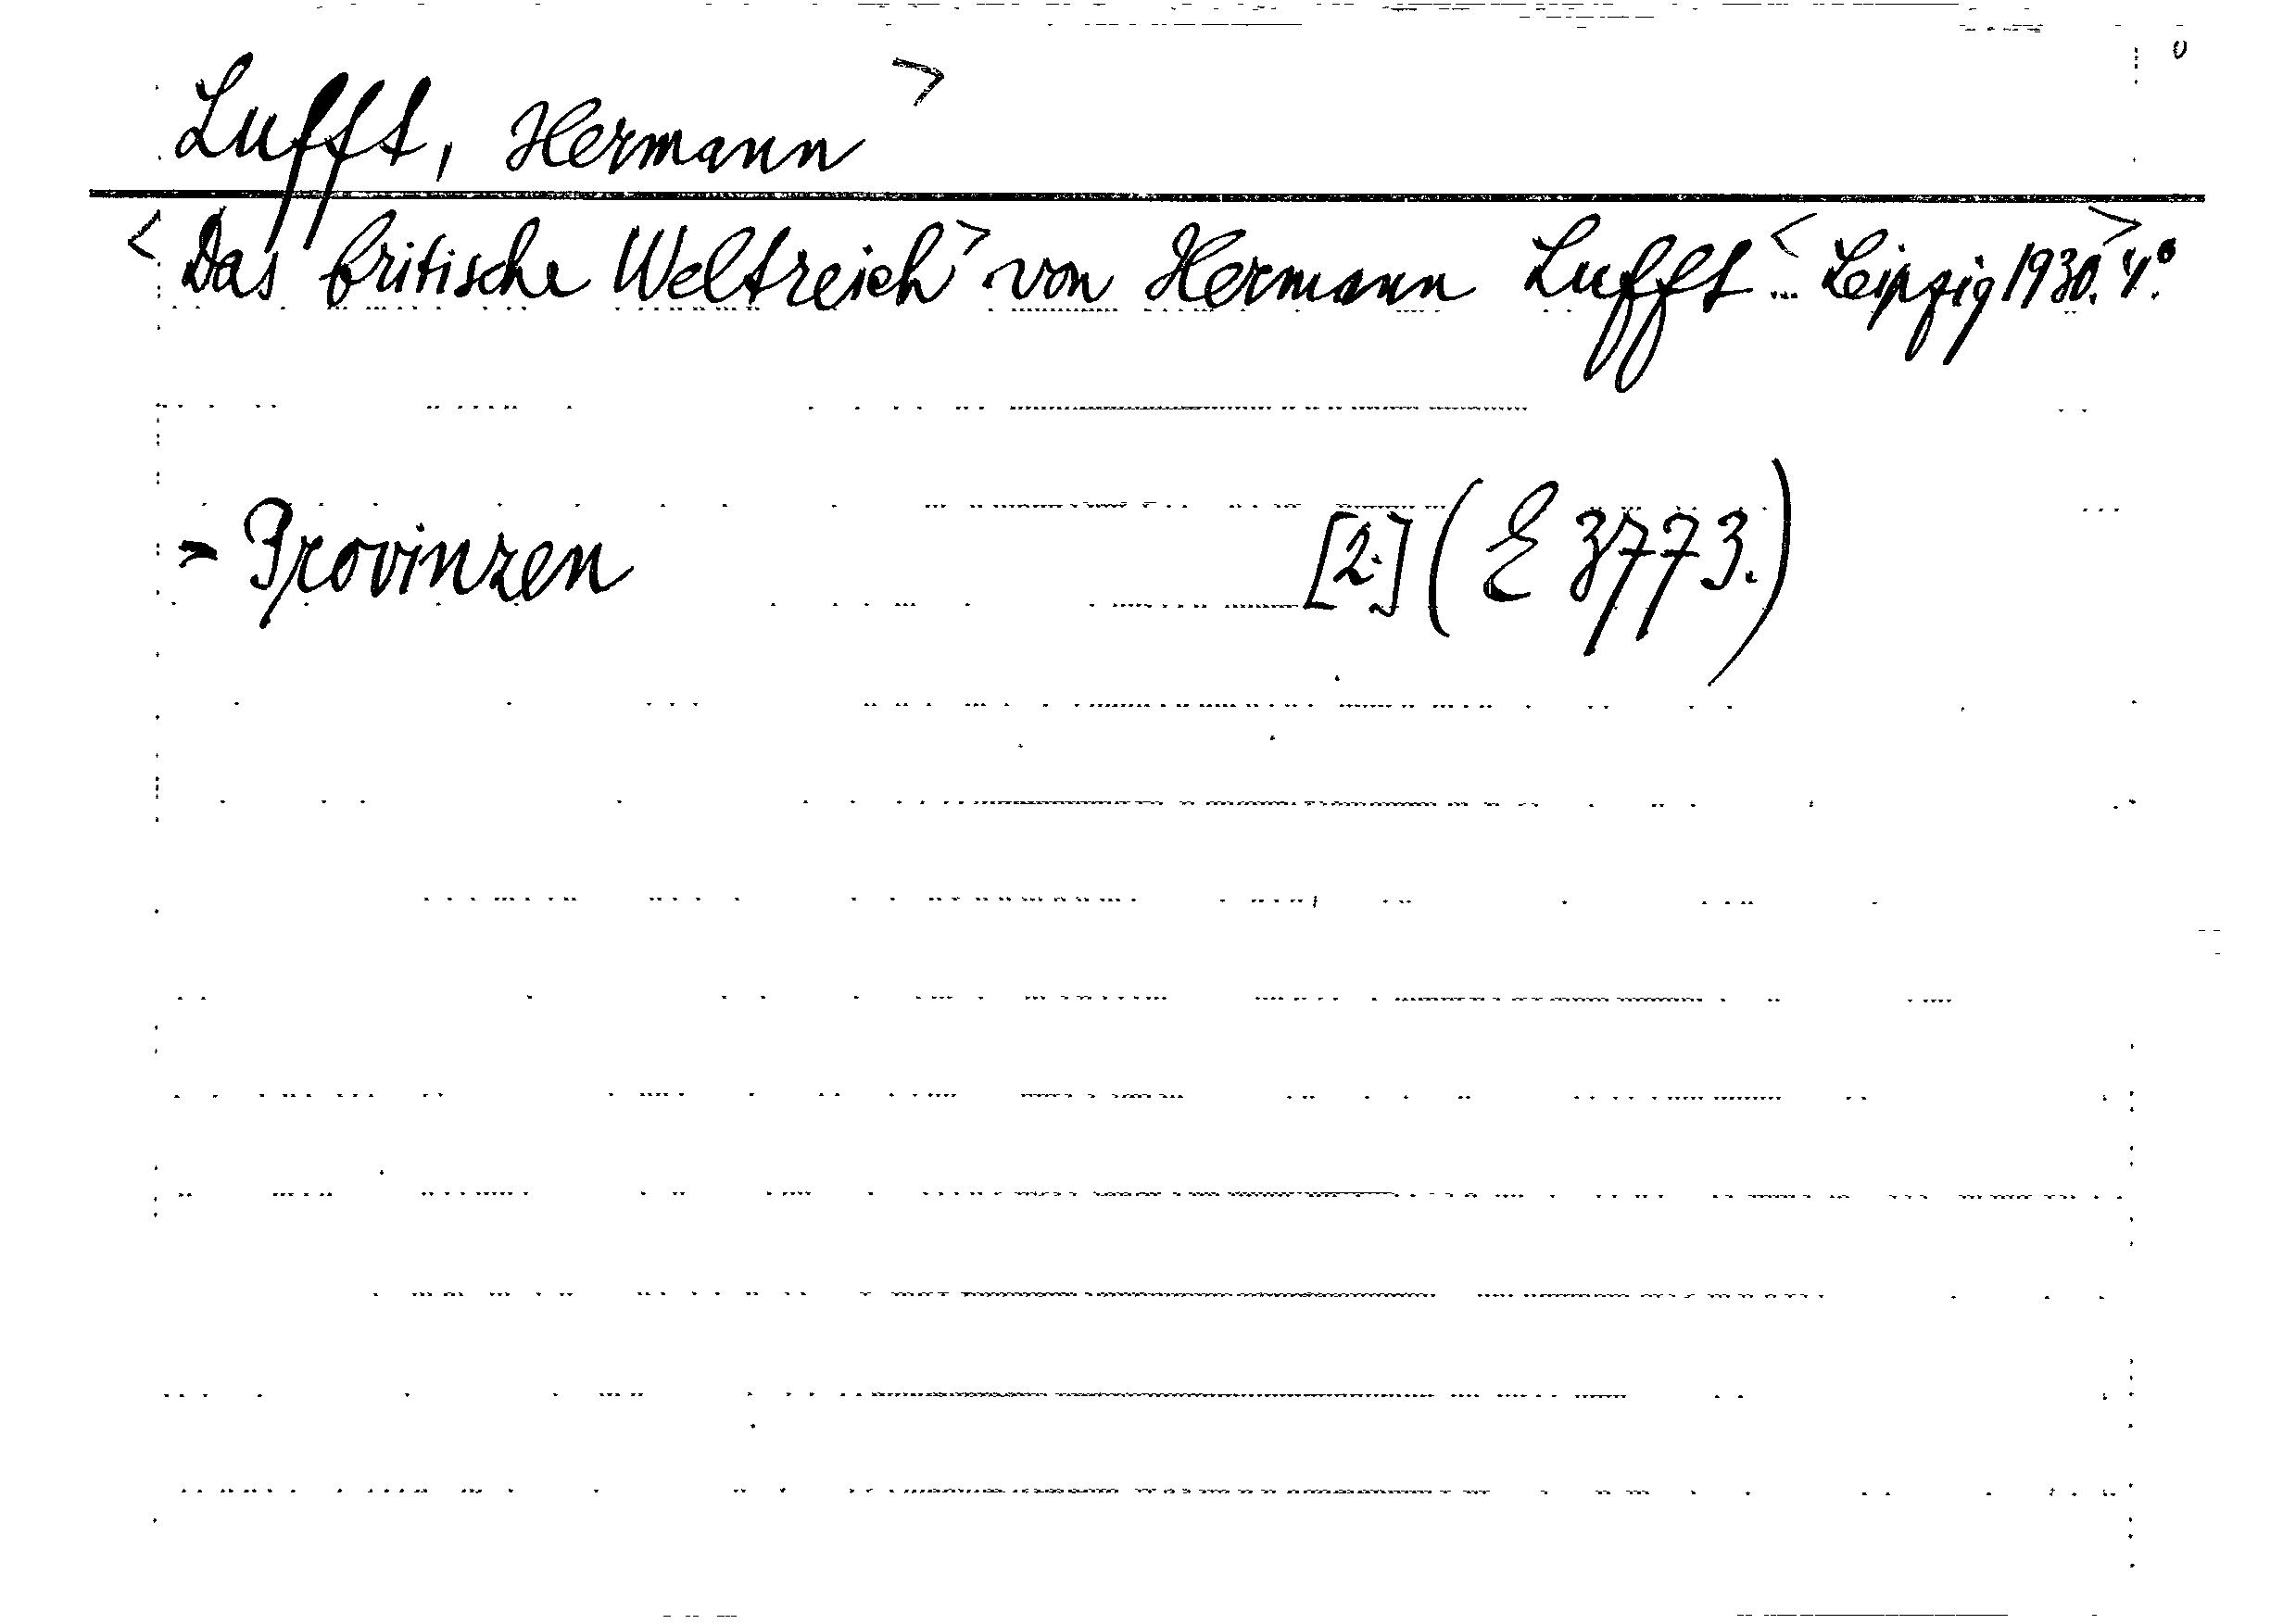 Lufft, Hermann >
< Das britische Weltreich > von Hermann Lufft < ... Leipzig 1930. > 4°.
= Provinzen [2.] (E 3773.)